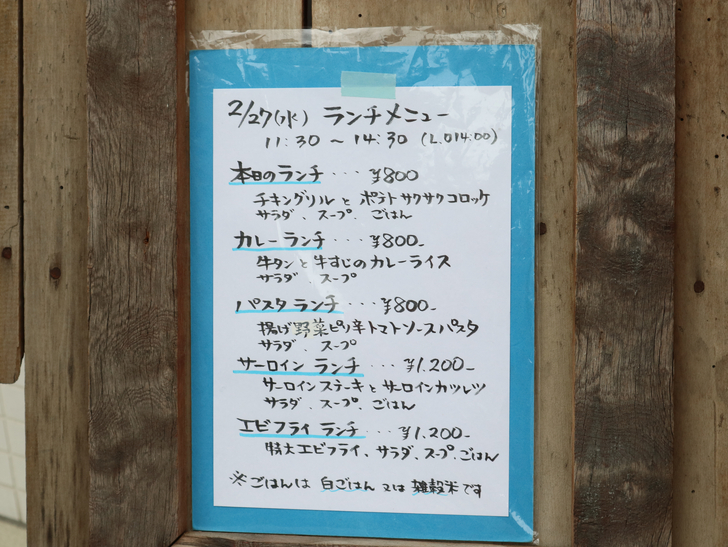 2/27(水) ランチメニュー
11:30 〜 14:30 (L.O14:00)
本日のランチ ... ¥800
チキングリルと ポテトサクサクコロッケ
サラダ、スープ、ごはん
カレーランチ ... ¥800-
牛タンと牛すじのカレーライス
サラダ、スープ
パスタランチ ... ¥800-
揚げ野菜ピリ辛トマトソースパスタ
サラダ、スープ
サーロインランチ ... ¥1,200-
サーロインステーキとサーロインカツレツ
サラダ、スープ、ごはん
エビフライランチ ... ¥1,200-
特大エビフライ、サラダ、スープ、ごはん
※ごはんは 白ごはん 又は 雑穀米です